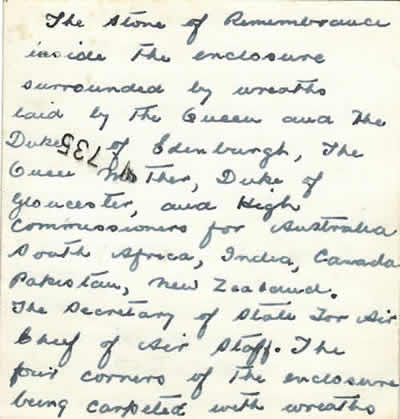 The Stone of Remembrance
inside the enclosure
surrounded by wreaths
laid by the Queen and the
Duke of Edinburgh, The
Queen Mother, Duke of
Gloucester, and High
Commissioners for Australia
South Africa, India, Canada
Pakistan, New Zealand.
The Secretary of State for Air
Chief of Air Staff. The
four corners of the enclosure
being carpeted with wreaths
735